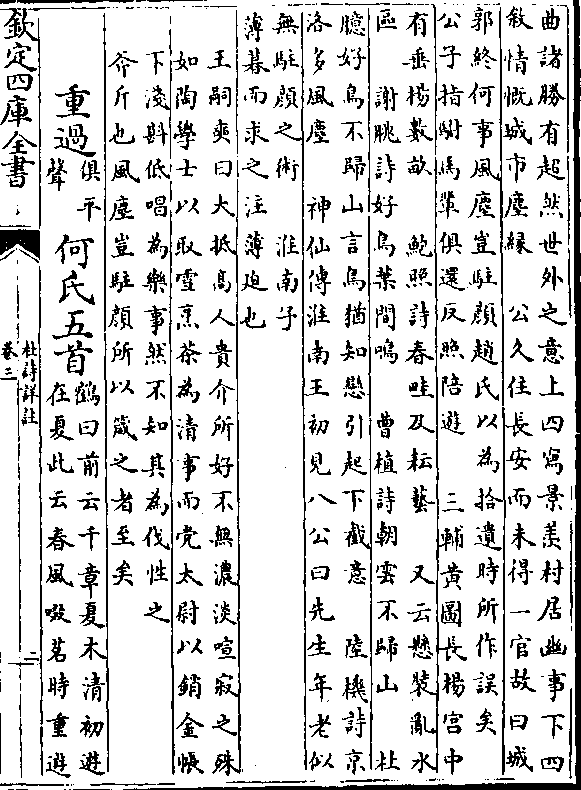 曲諸勝有超然世外之意上四寫景羡村居幽事下四
敘情慨城市塵緣　公久住長安而未得一官故曰城
郭終何事風塵豈駐顔趙氏以為拾遺時所作誤矣
公子指駙馬輩俱還反照陪遊　三輔黃圖長楊宮中
有垂楊數畝　鮑照詩春畦及耘藝　又云懸裝亂水
區　謝朓詩好鳥葉間鳴　曹植詩朝雲不歸山　杜
臆好鳥不歸山言鳥猶知戀引起下截意　陸機詩京
洛多風塵　神仙傳淮南王初見八公曰先生年老似
無駐顔之術　淮南子
薄暮而求之注薄迫也
王嗣奭曰大抵高人貴介所好不無濃淡喧寂之殊
如陶學士以取雪烹茶為清事而党太尉以銷金帳
下淺斟低唱為樂事然不知其為伐性之
斧斤也風塵豈駐顔所以箴之者至矣
重過俱平聲何氏五首鶴曰前云千章夏木清初遊
在夏此云春風啜茗時重遊
欽定四庫全書
杜詩詳註
卷三
二